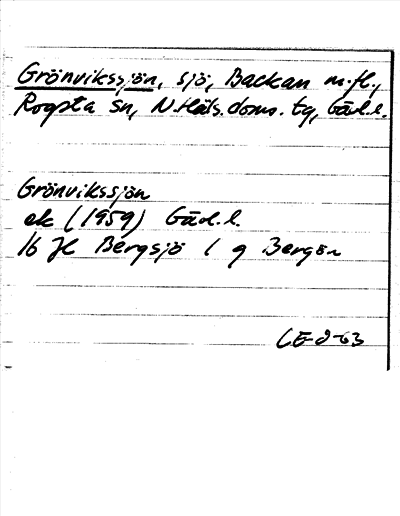 Grönvikssjön, sjö, Backan m.fl.,
Rogsta sn, N.Häls.doms. tg, Gävl.l.
Grönvikssjön
ek (1959) Gävl.l.
16 H Bergsjö 1 g Bergön